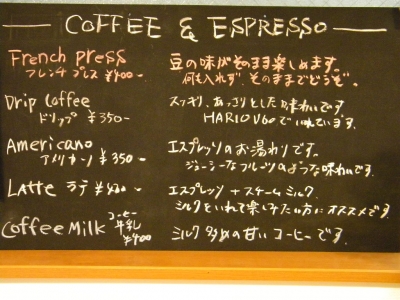 COFFEE & ESPRESSO
French press
フレンチプレス ¥400-
豆の味がそのまま楽しめます。
何も入れず、そのままでどうぞ。
Drip Coffee
ドリップ ¥350-
スッキリ、あっさりとした味わいです。
HARIO V60でいれています。
Americano
アメリカーノ ¥350-
エスプレッソのお湯わりです。
ジューシーなフルーツのような味わいです。
Latte ラテ ¥400-
エスプレッソ+スチームミルク
ミルクをいれて楽しみたい方にオススメです
Coffee Milk コーヒー牛乳 ¥400
ミルク多めの甘いコーヒーです。